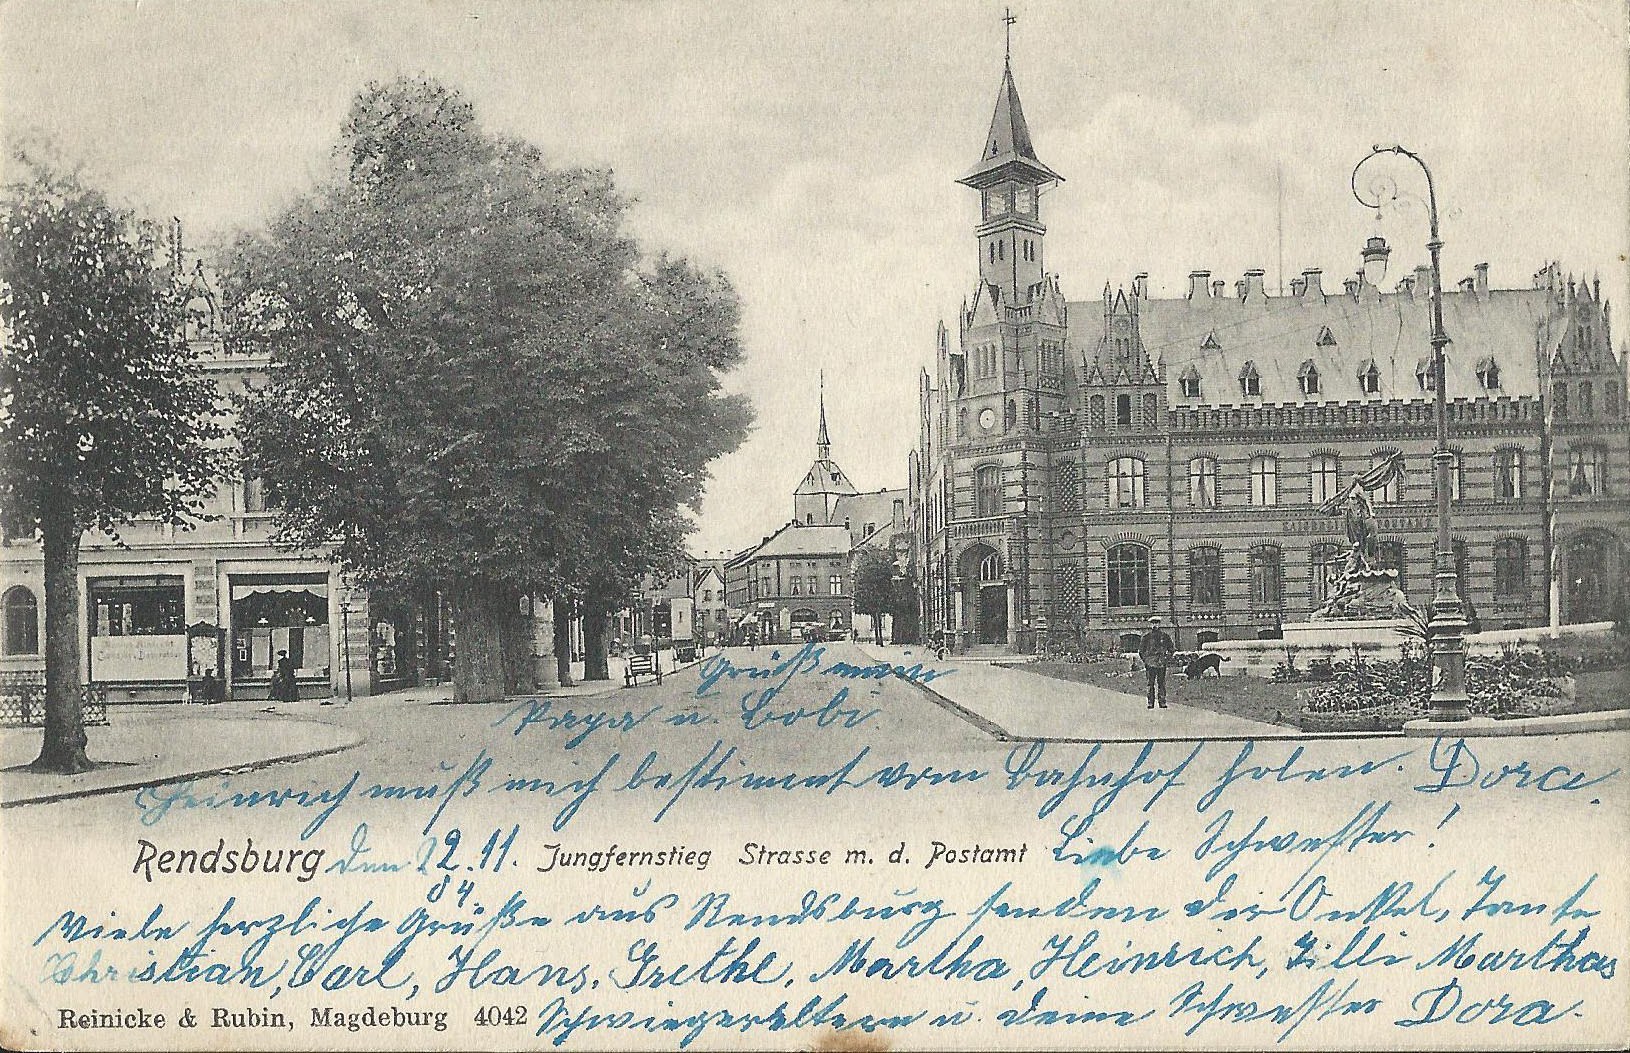 KAISERLICHES POSTAMT
Grüß mein
Papa u. Bobi.
Heinrich muß mich bestimmt vom Bahnhof holen. Dora.
Rendsburg den 22.11. Jungfernstieg Strasse m. d. Postamt Liebe Schwester!
04.
Viele herzliche Grüße aus Rendsburg senden dir Onkel, Tante
Christian, Carl, Hans, Grethe, Martha, Heinrich, Tilli Marthas
Reinicke & Rubin, Magdeburg 4042 Schwiegereltern u. deine Schwester Dora.